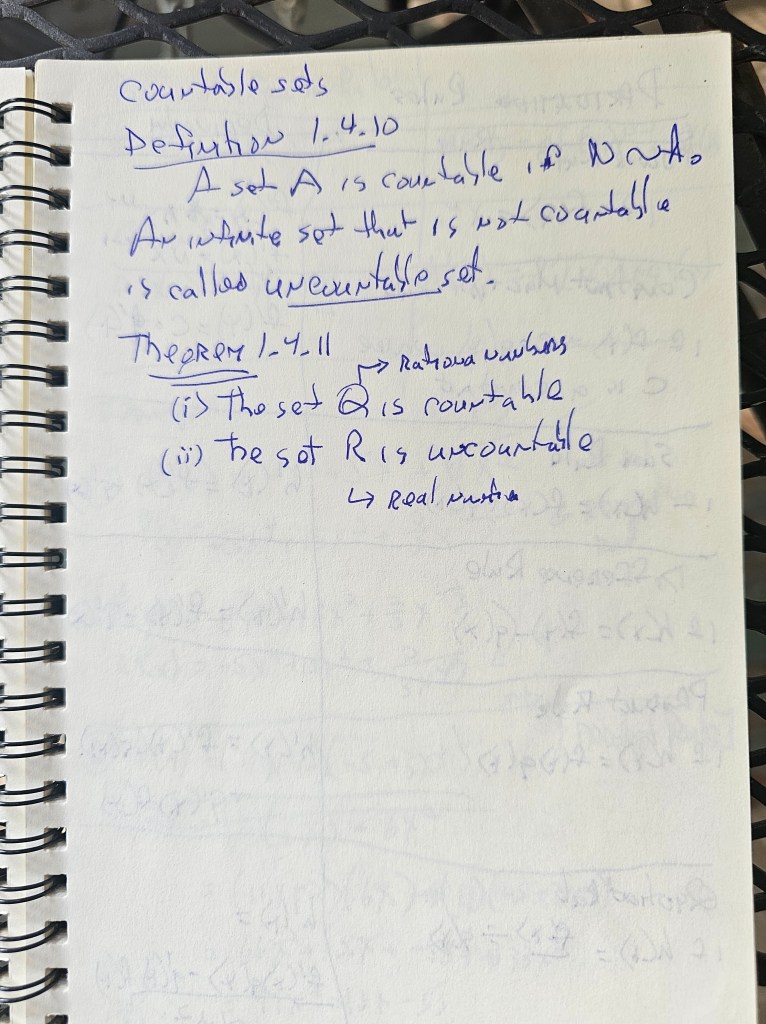 Countable sets
Definition 1.4.10
A set A is countable if N ~ A.
An infinite set that is not countable
is called uncountable set.
Theorem 1.4.11
→ Rational numbers
(i) The set Q is countable
(ii) The set R is uncountable
↳ Real